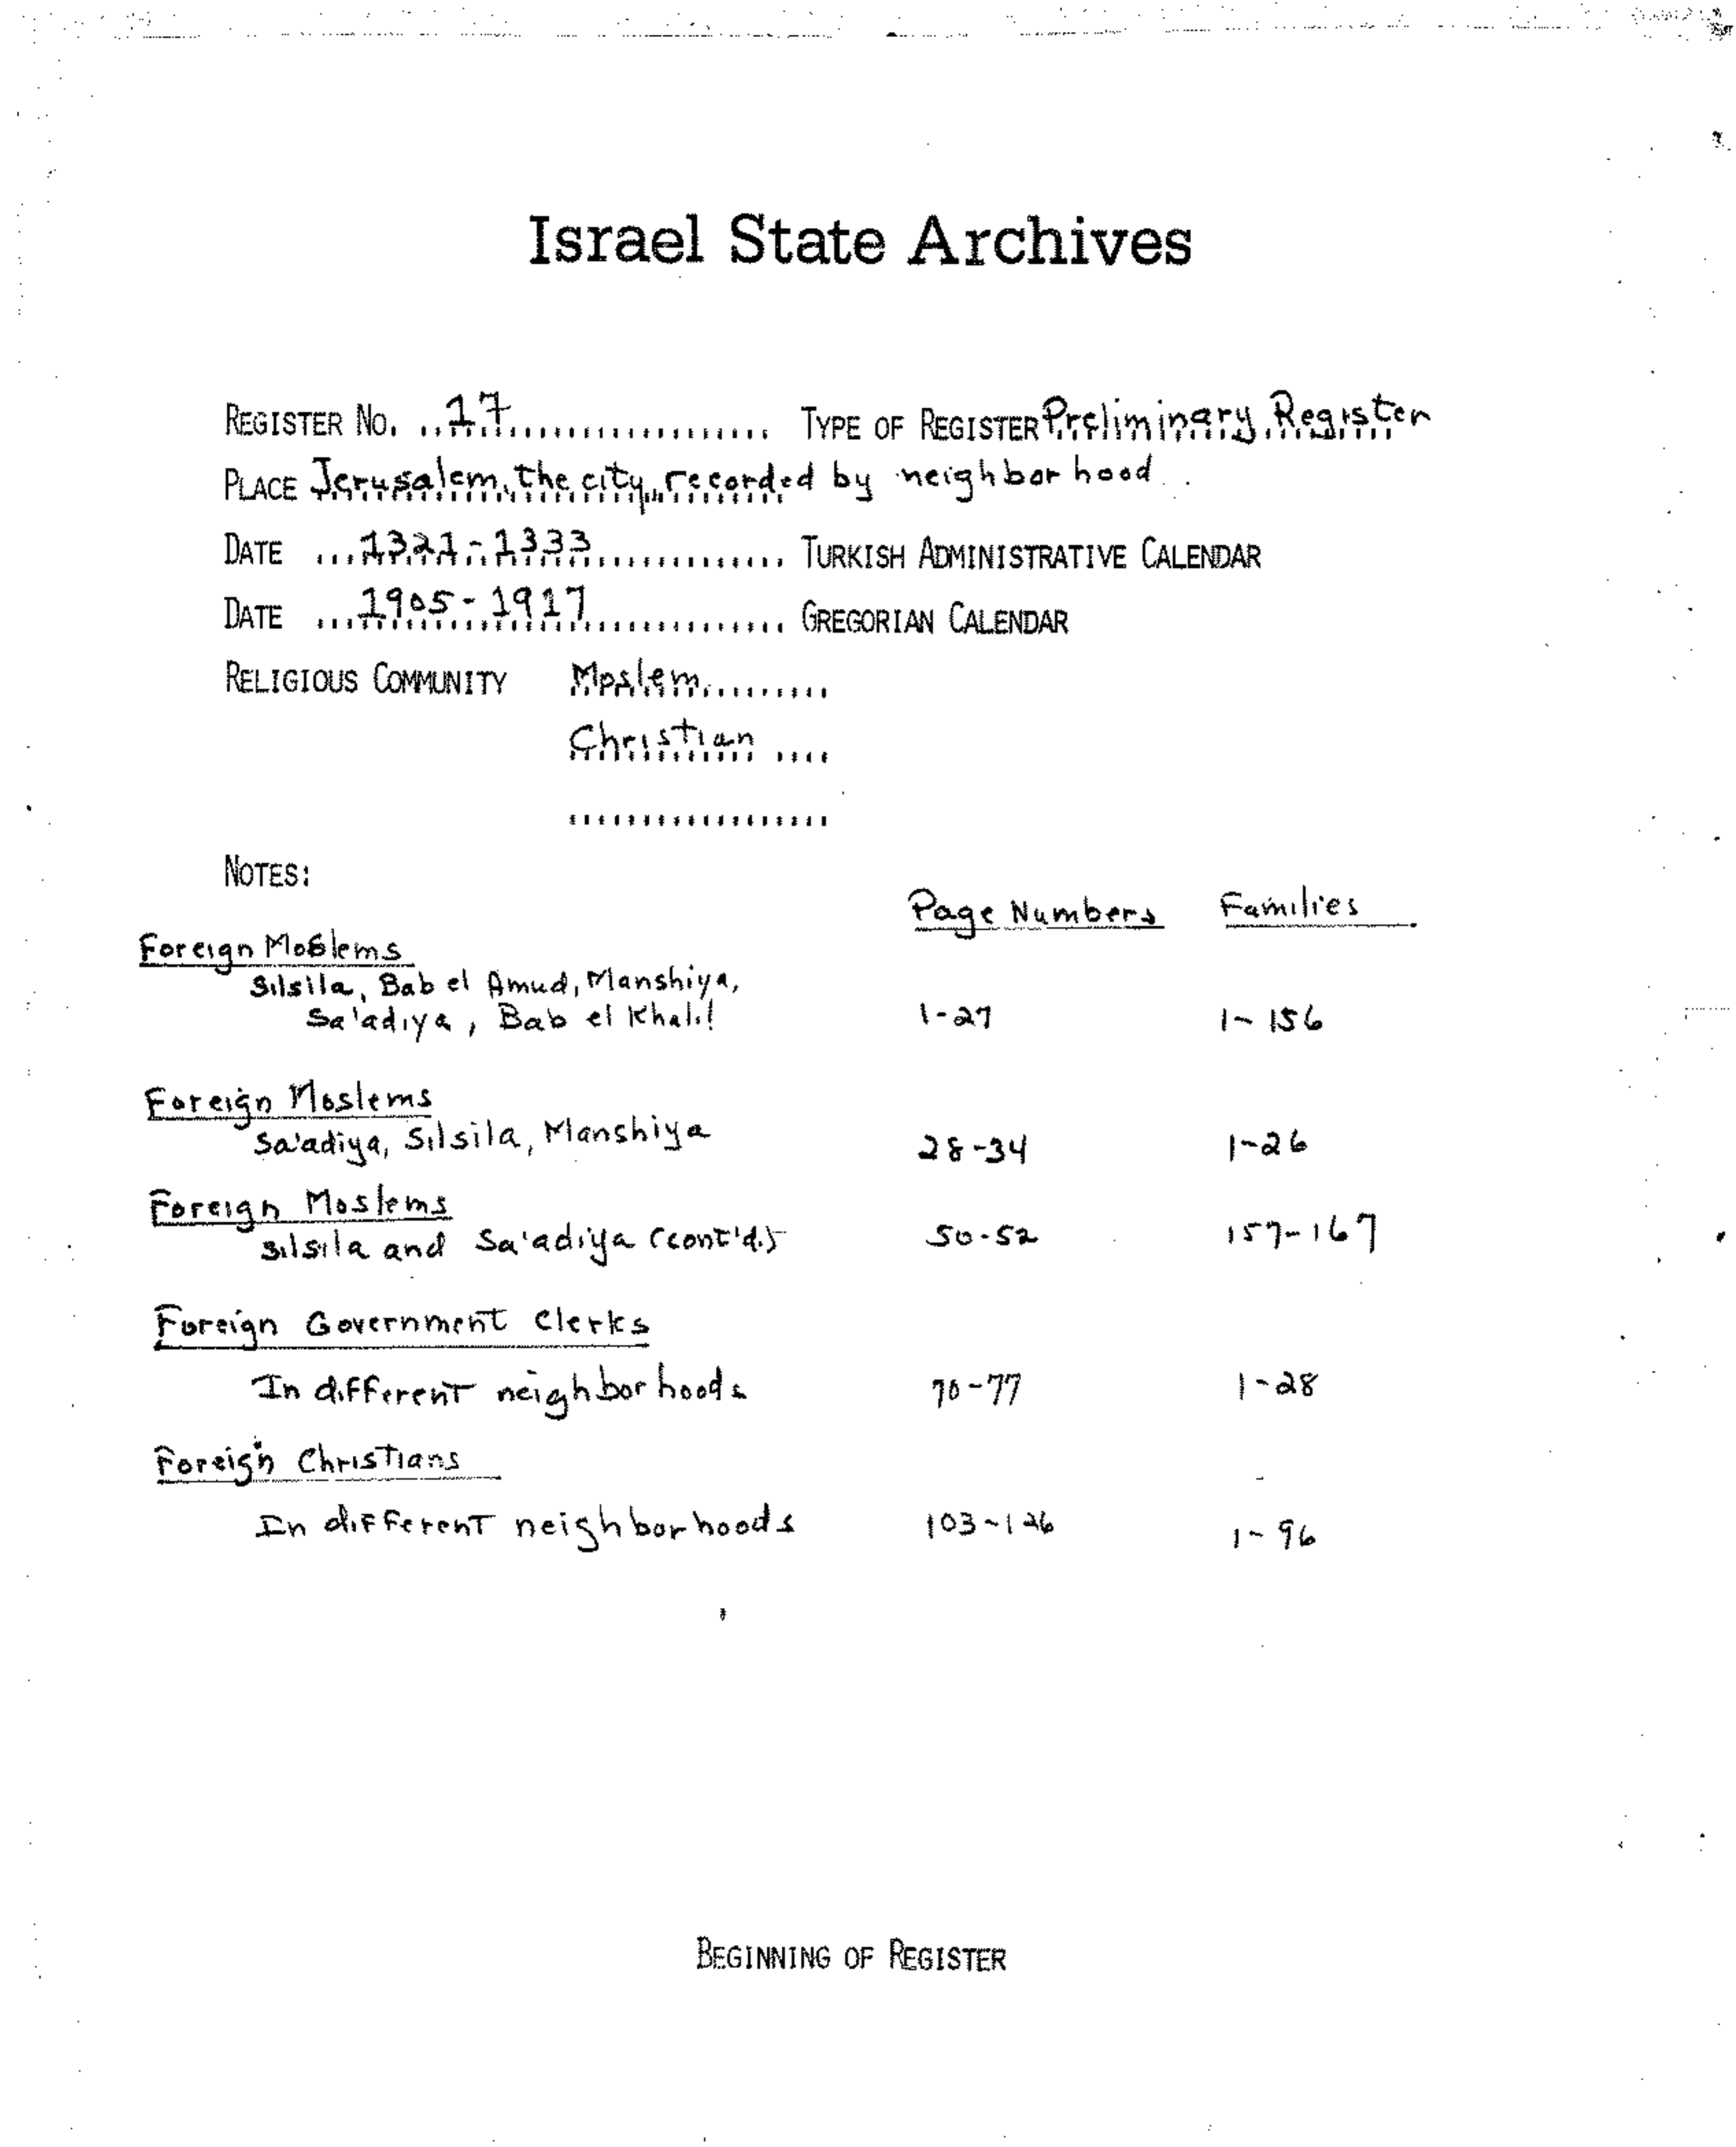 Israel State Archives
REGISTER NO. 17 TYPE OF REGISTER Preliminary Register
PLACE Jerusalem, the city, recorded by neighborhood
DATE 1321-1333 TURKISH ADMINISTRATIVE CALENDAR
DATE 1905-1917 GREGORIAN CALENDAR
RELIGIOUS COMMUNITY Moslem
Christian
NOTES:
Page Numbers Families
Foreign Moslems
Silsila, Bab el Amud, Manshiya,
Sa'adiya, Bab el Khalil 1-27 1-156
Foreign Moslems
Sa'adiya, Silsila, Manshiya 28-34 1-26
Foreign Moslems
Silsila and Sa'adiya (cont'd.) 50-52 157-167
Foreign Government Clerks
In different neighborhoods 70-77 1-28
Foreign Christians
In different neighborhoods 103-126 1-96
BEGINNING OF REGISTER